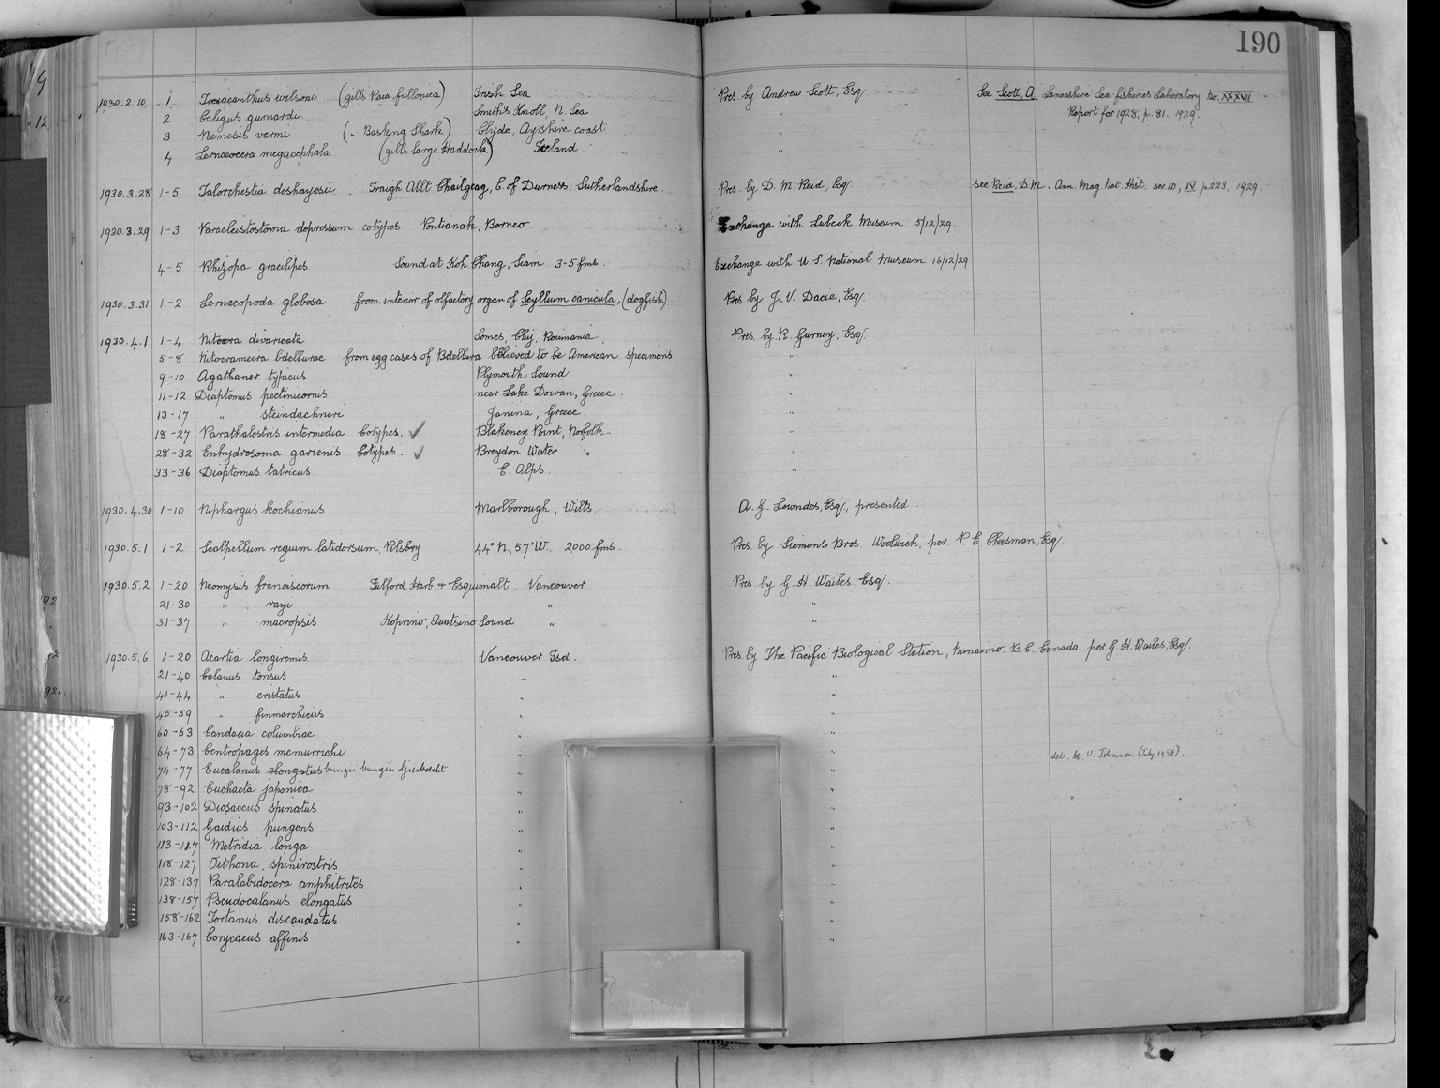 190
1930.2.10. 1 Trexacanthus wilsoni (gills Raia fullonica) Irish Sea Pres. by Andrew Scott, Esq. See Scott, A. Lancashire Sea fisheries Laboratory No. XXXVII
2 Caligus gurnardi Smith's Knoll, N. Sea " Report for 1928, p. 81. 1929.
3 Nemesis vermi ( " Basking Shark) Clyde, Ayrshire coast "
4 Lernaeocera megacephala (gills large Haddock) Iceland "
1930.3.28 1-5 Talorchestia deshayesii Traigh Allt Chailgeag, E of Durness. Sutherlandshire. Pres. by D. M. Reid, Esq. see Reid, D.M. Ann. Mag. Nat. Hist. ser 10, IV p.223, 1929.
1930.3.29 1-3 Paracleistostoma depressum cotypes Pontianak, Borneo. Exchange with Lubeck Museum 5/12/29.
4-5 Rhizopa gracilipes Sound at Koh Chang, Siam 3-5 fms. Exchange with U.S. National Museum 16/12/29
1930.3.31 1-2 Lernaeopoda globosa from interior of olfactory organ of Scyllium canicula, (dogfish) Pres. by J. V. Dacie, Esq.
1930.4.1 1-4 Nitocra divaricata Somes, Cluj, Roumania Pres. by R. Gurney, Esq.
5-8 Nitocrameira bdellurae from egg cases of Bdellura believed to be American specimens "
9-10 Agathaner typicus Plymouth Sound "
11-12 Diaptomus pectinicornis near Lake Doiran, Greece. "
13-17 " steindachneri Janina, Greece. "
18-27 Parathalestris intermedia Cotypes. ✓ Blakeney Point, Norfolk "
28-32 Enhydrosoma gariensis Cotypes. ✓ Breydon Water " "
33-36 Diaptomus tatricus E Alps. "
1930.4.30 1-10 Niphargus kochianus Marlborough, Wilts A. G. Lowndes, Esq., presented.
1930.5.1 1-2 Scalpellum regium latidorsum, Pilsbry 44° N, 57° W. 2000 fms. Pres. by Siemens Bros. Woolwich, per. P. E. Cheesman, Esq.
1930.5.2 1-20 Neomysis franciscorum Telford Harb. + Esquimalt. Vancouver Pres. by G. H. Wailes Esq.
21-30 " rayi " "
31-37 " macropsis Koprino, Quatsino Sound " "
1930.5.6 1-20 Acartia longiremis Vancouver Isd. Pres. by The Pacific Biological Station, Nanaimo B.C. Canada per G. H. Wailes, Esq.
21-40 Calanus tonsus " "
41-44 " cristatus " "
45-59 " finmarchicus " "
60-63 Candacia columbiae " "
64-73 Centropages mcmurrichi " "
74-77 Eucalanus elongatus bungii bungii Giesbrecht " " det. M. W. Johnson (July 1938).
78-92 Euchaeta japonica " "
93-102 Diosaccus spinatus " "
103-112 Gaidius pungens " "
113-117 Metridia longa " "
118-127 Oithona spinirostris " "
128-137 Paralabidocera amphitrites " "
138-157 Pseudocalanus elongatus " "
158-162 Tortanus discaudatus " "
163-167 Corycaeus affinis " "